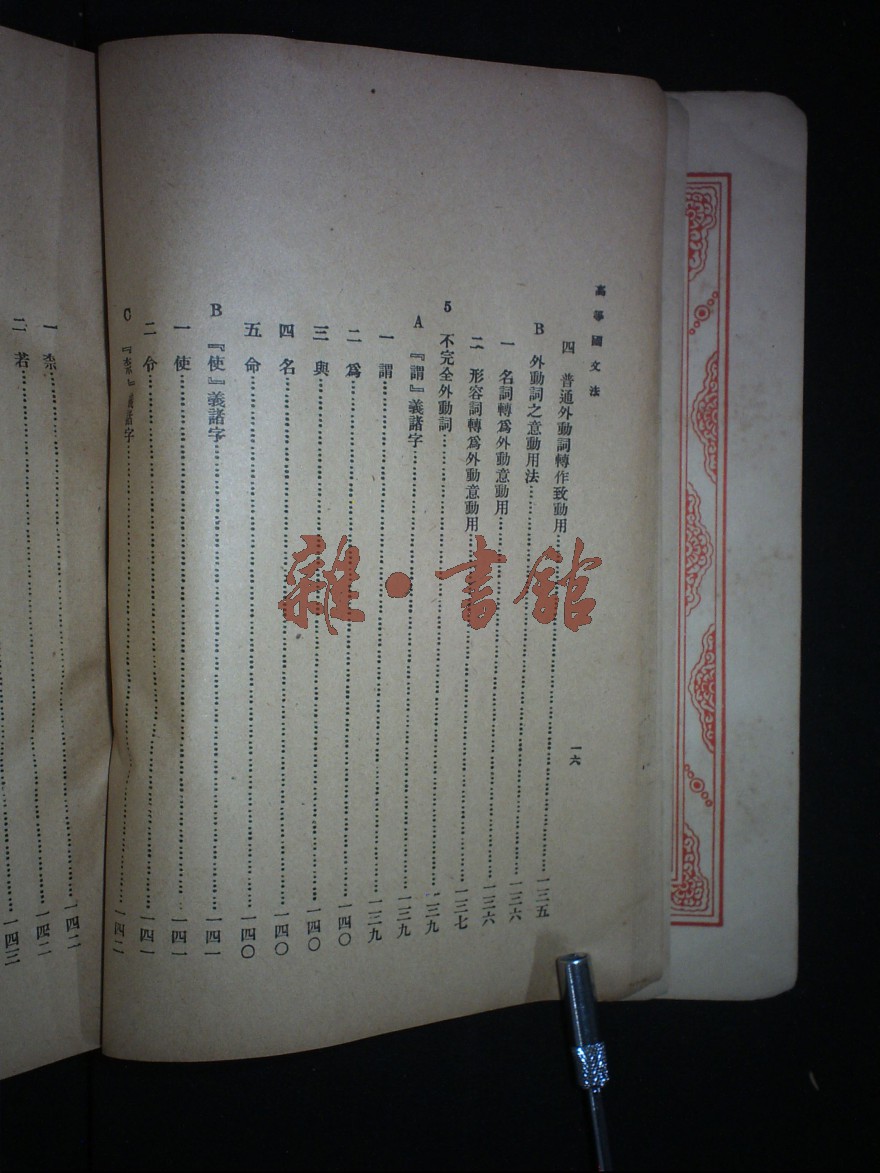 高等國文法
一六
四 普通外動詞轉作致動用……一三五
B 外動詞之意動用法……一三六
一 名詞轉爲外動意動用……一三六
二 形容詞轉爲外動意動用……一三七
5 不完全外動詞……一三九
A 『謂』義諸字……一三九
一 謂……一三九
二 爲……一四〇
三 與……一四〇
四 名……一四〇
五 命……一四〇
B 『使』義諸字……一四一
一 使……一四一
二 令……一四一
C 『柰』義諸字……一四二
一 柰……一四二
二 若……一四二
……一四三
雜·書館